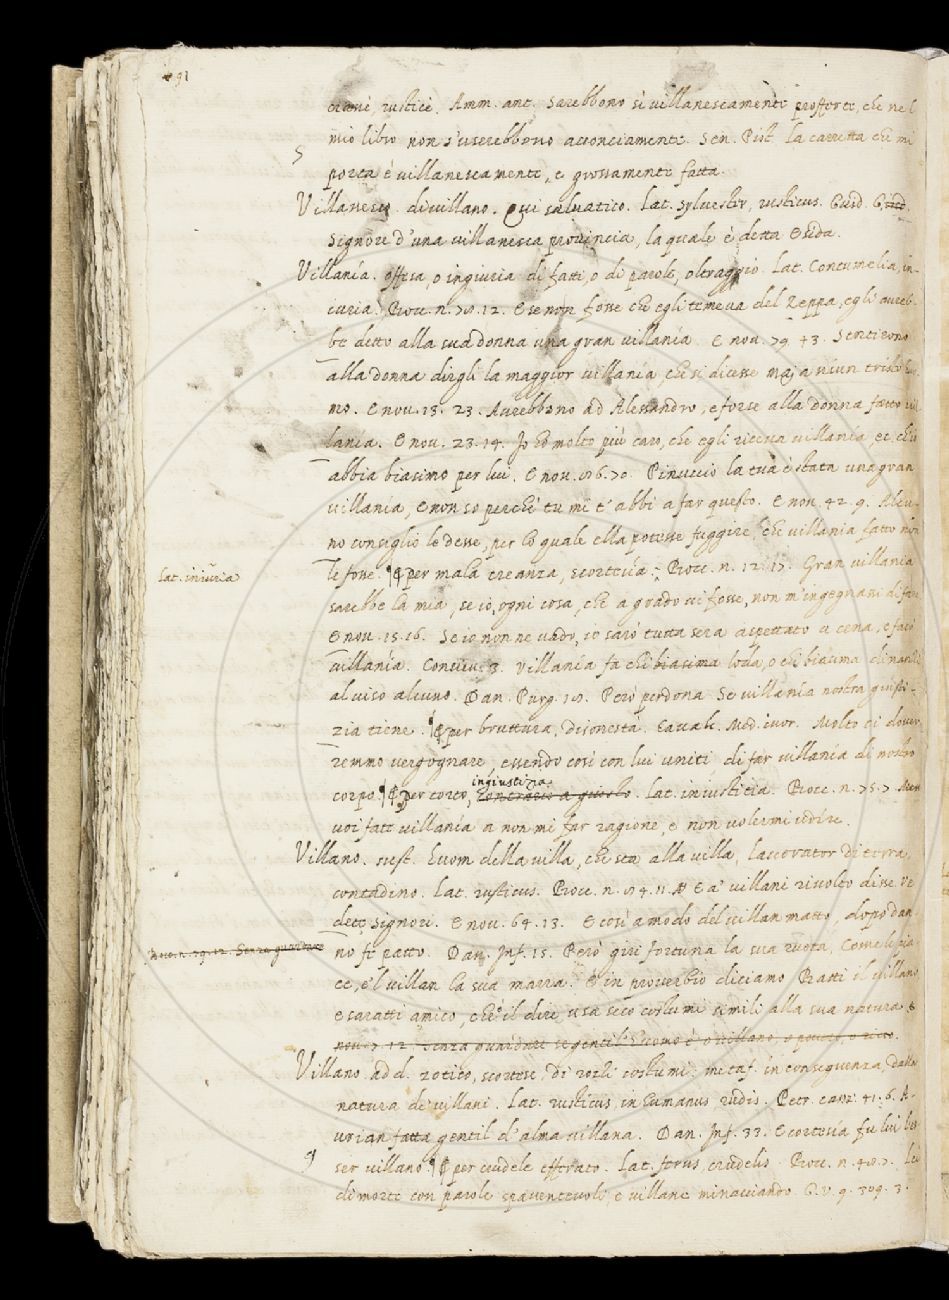 91
rustice. Amm. ant. Sarebbono sì villanescamente profferte, che nel
mio libro non s'userebbono acconciamente. Sen. Pist. La carretta che mi
porta è villanescamente, e grossamente fatta.
Villanesco. di villano. Qui salvatico. Lat. sylvester, rusticus. Guid. G.
Signore d'una villanesca provincia, la quale è detta
Villanía. offesa, o ingiuria di fatti, o di parole, oltraggio. Lat. Contumelia, in-
iuria. Bocc. n. 78. 12. E se non fosse che egli temeva del Zeppa, egli avreb-
be detto alla sua donna una gran villanía. E nov. 79. 43. Sentirono
alla donna dirgli la maggior villanía, che si dicesse mai a niun tristo huo-
mo. E nov. 13. 23. Avrebbono ad Alessandro, e forse alla donna fatto vil-
lanía. E nov. 23. 14. Io ho molto più caro, che egli riceva villanía, ec. ch'io
abbia biasimo per lui. E nov. 86. Pinuccio la tua è stata una gran
villanía, E non so perchè tu mi t'abbi a far questo. E nov. 42. 9. Alcu-
no consiglio le desse, per lo quale ella potesse fuggire, che villanía fatto non
le fosse. ¶ per mala creanza, scortesía. Bocc. n. 12. 17. Gran villanía
Lat. iniuria
sarebbe la mia, se io, ogni cosa, che a grado vi fosse, non m'ingegnassi di fare
E nov. 15. 16. Se io non ne vado, io sarò tutta sera aspettato a cena, e farò
villanía. Conviv. 3. Villanía fa chi biasima loda, o chi biasima dinanzi
al viso alcuno. Dan. Purg. 18. Però perdona Se villanía nostra giusti-
zia tiene. ¶ per bruttura, disonestà. Cavalc. Med. cuor. Molto ci dover-
remmo vergognare, essendo così con lui uniti, di far villanía di nostro
ingiustizia.
corpo. ¶ per torto, contrario a giusto. Lat. iniustitia. Bocc. n. 75. 7.
voi fate villanía a non mi far ragione, e non volermi udire.
Villano. sust. Huom della villa, che sta alla villa, lavorator di terra,
contadino. Lat. rusticus. Bocc. n. 84. 11. E a' villani rivolto disse. Ve-
dete Signori. E nov. 64. 13. E così a modo del villan matto, dopo dan-
Bocc. n. 29. 12. Senza guardare
no fe patto. Dan. Inf. 15. Però giri fortuna la sua ruota, Come le pia-
ce, e 'l villan la sua marra. E in proverbio diciamo Batti il villano
e saratti amico, che è il dire usa seco costumi simili alla sua natura. E
nov. 7. 12. Senza guardare se gentil huomo è o villano, o povero, o ricco.
Villano. add. zotico, scortese, di rozzi costumi. metaf. in conseguenza, dalla
natura de' villani. Lat. rusticus, inhumanus, rudis. Petr. canz. 41. 6. A-
urian fatta gentil d'alma villana. Dan. Inf. 33. E cortesía fu lui l'es-
ser villano. ¶ per crudele efferato. Lat. ferus, crudelis. Bocc. n. 48. 7. Lei
di morte con parole spaventevoli, e villane minacciando. G. V. 9. 309. 3.